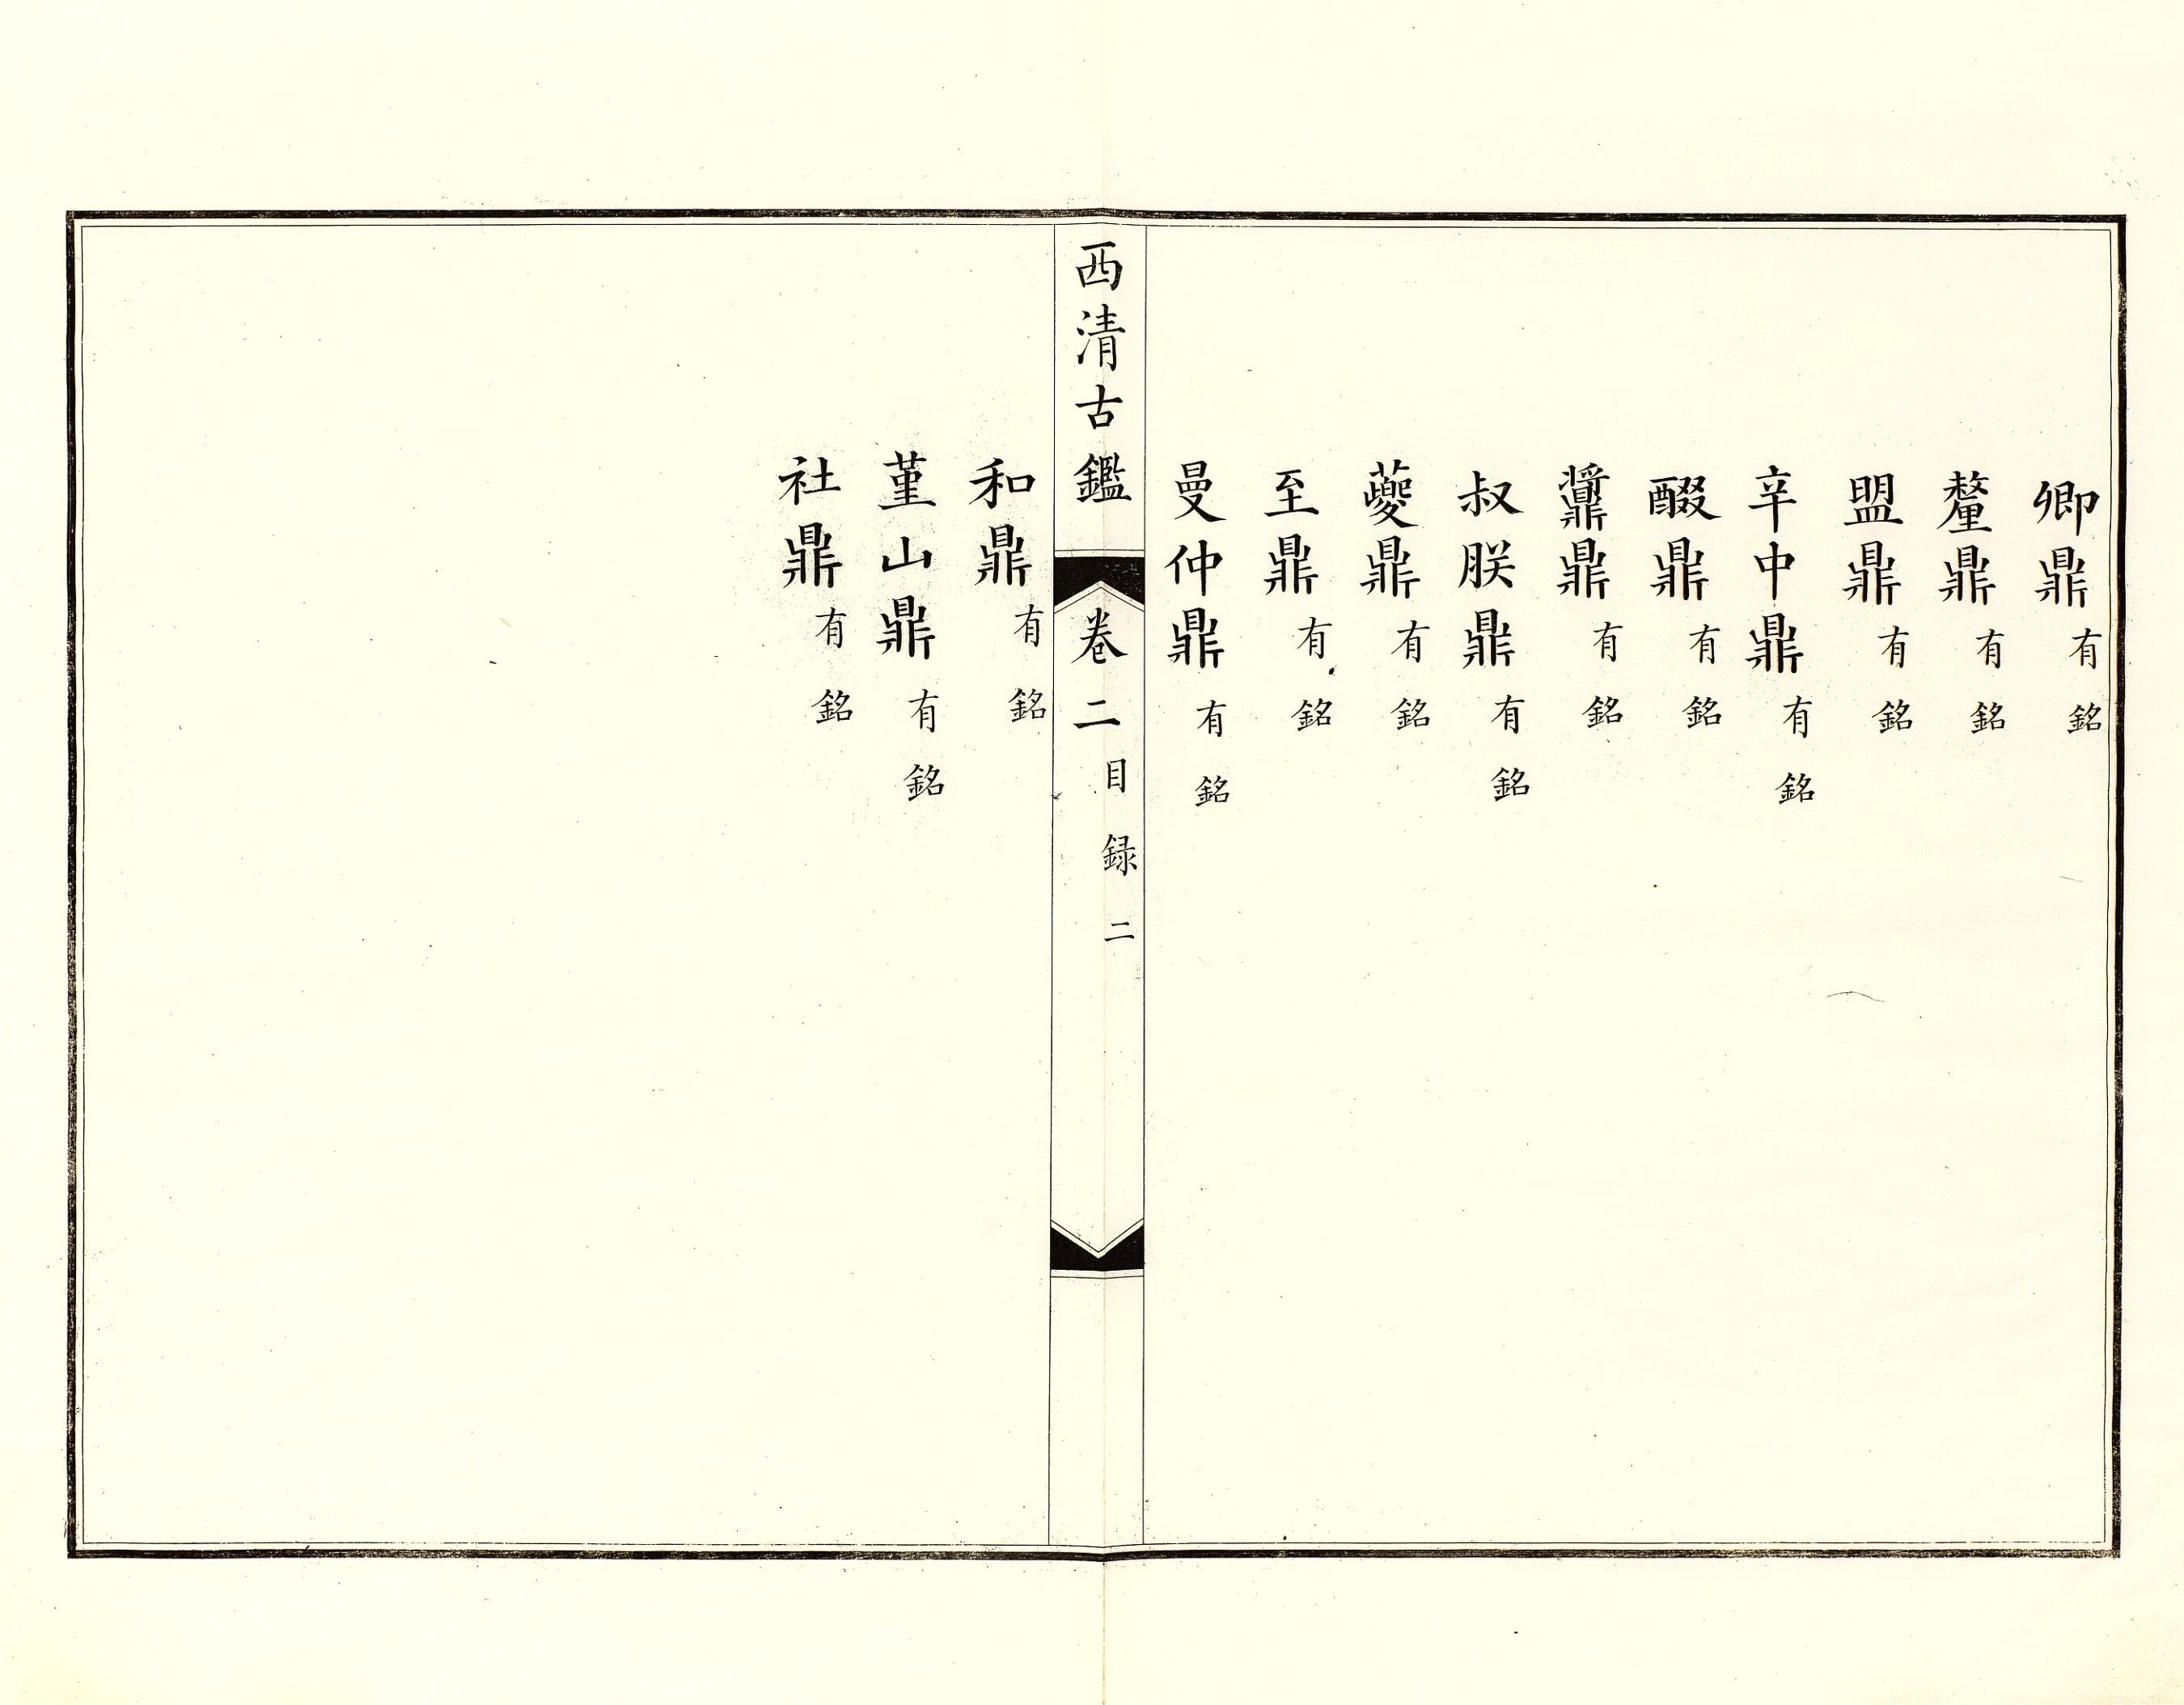 卿鼎有銘
釐鼎有銘
盟鼎有銘
辛中鼎有銘
醊鼎有銘
鼎有銘
叔朕鼎有銘
鼎有銘
至鼎有銘
曼仲鼎有銘
西清古鑑 卷二 目録 二
和鼎有銘
堇山鼎有銘
社鼎有銘